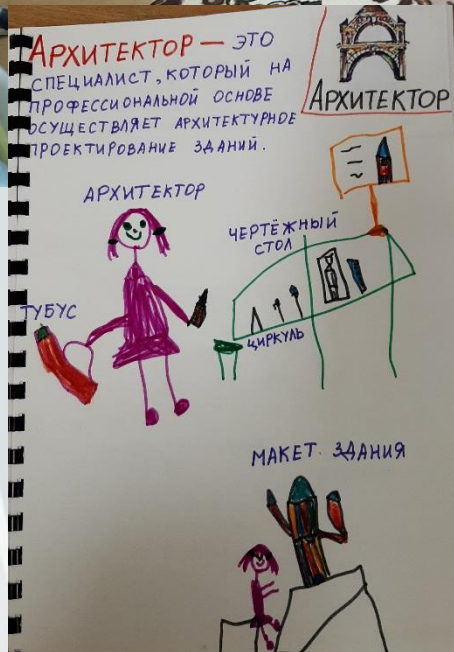 АРХИТЕКТОР — ЭТО
СПЕЦИАЛИСТ, КОТОРЫЙ НА
ПРОФЕССИОНАЛЬНОЙ ОСНОВЕ
ОСУЩЕСТВЛЯЕТ АРХИТЕКТУРНОЕ
ПРОЕКТИРОВАНИЕ ЗДАНИЙ.
АРХИТЕКТОР
АРХИТЕКТОР
ЧЕРТЁЖНЫЙ
СТОЛ
ТУБУС
ЦИРКУЛЬ
МАКЕТ ЗДАНИЯ